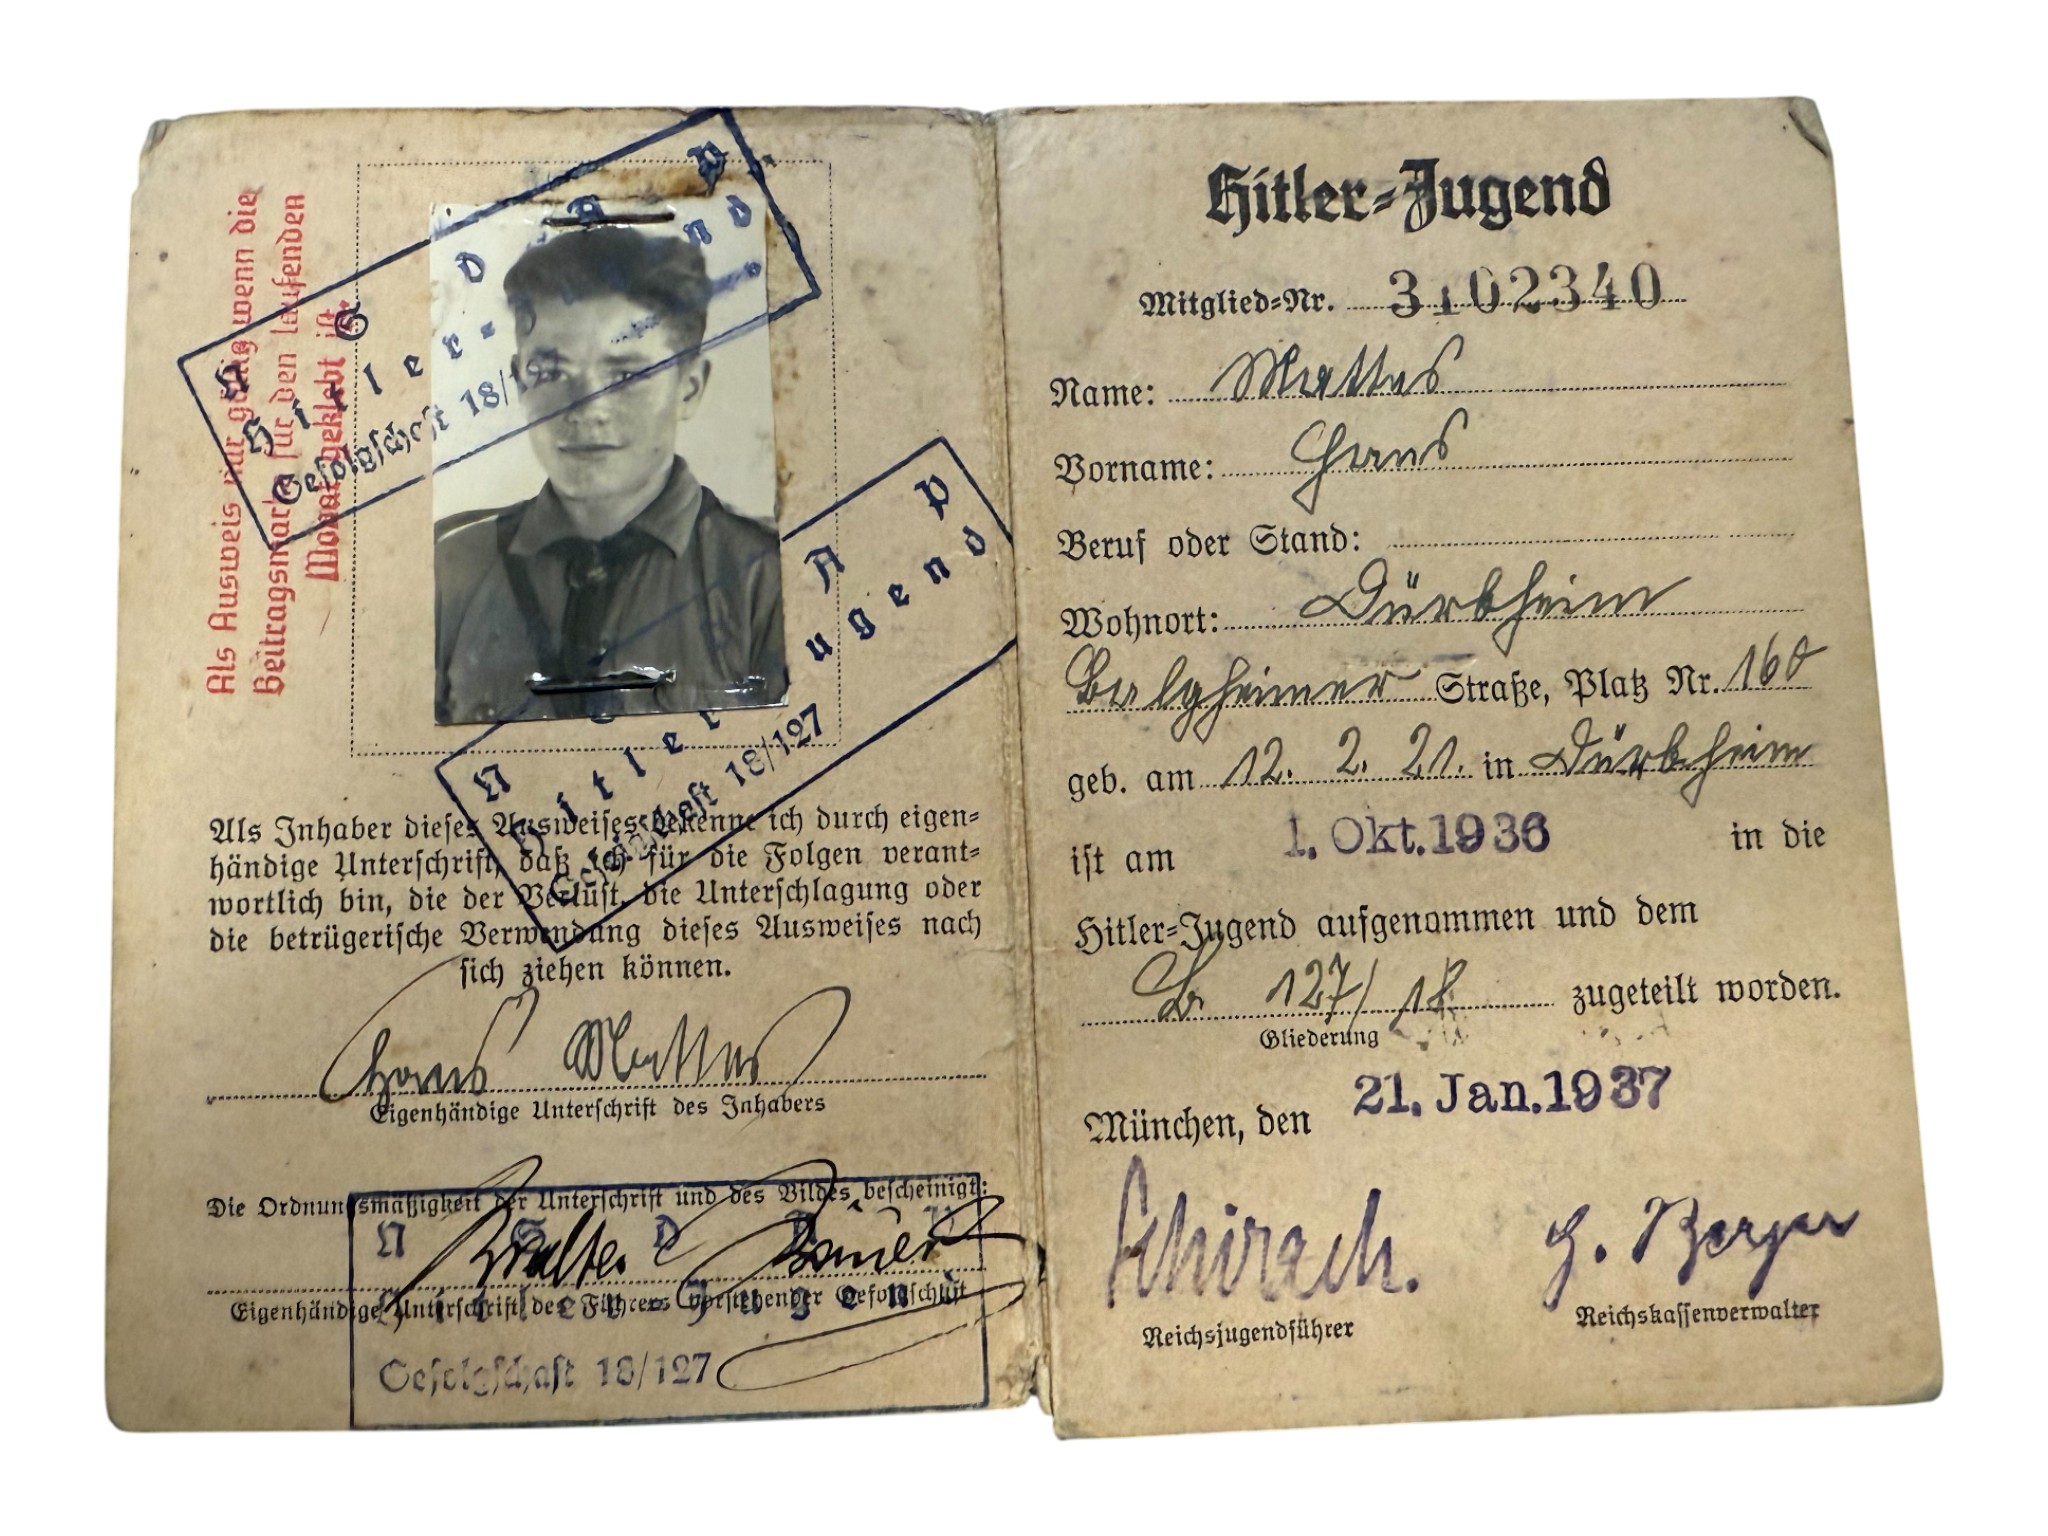 Als Ausweis nur gültig, wenn die
Beitragsmarke für den laufenden
Monat geklebt ist.
N S D A P
Hitler-Jugend
Gefolgschaft 18/127
N S D A P
Hitler-Jugend
Gefolgschaft 18/127
Als Inhaber dieses Ausweises bekenne ich durch eigen-
händige Unterschrift, daß ich für die Folgen verant-
wortlich bin, die der Verlust, die Unterschlagung oder
die betrügerische Verwendung dieses Ausweises nach
sich ziehen können.
Hans Mattes
Eigenhändige Unterschrift des Inhabers
Die Ordnungsmäßigkeit der Unterschrift und des Bildes bescheinigt:
Walter
Eigenhändige Unterschrift des Führers vorstehender Gefolgschaft
N S D A P
Hitler-Jugend
Gefolgschaft 18/127
Hitler-Jugend
Mitglied-Nr. 3102340
Name: Mattes
Vorname: Hans
Beruf oder Stand:
Wohnort: Dürbheim
Balgheimer Straße, Platz Nr. 160
geb. am 12. 2. 21. in Dürbheim
ist am 1. Okt. 1936 in die
Hitler-Jugend aufgenommen und dem
127/18 zugeteilt worden.
Gliederung
München, den 21. Jan. 1937
Schirach.
Reichsjugendführer
G. Berger
Reichskassenverwalter